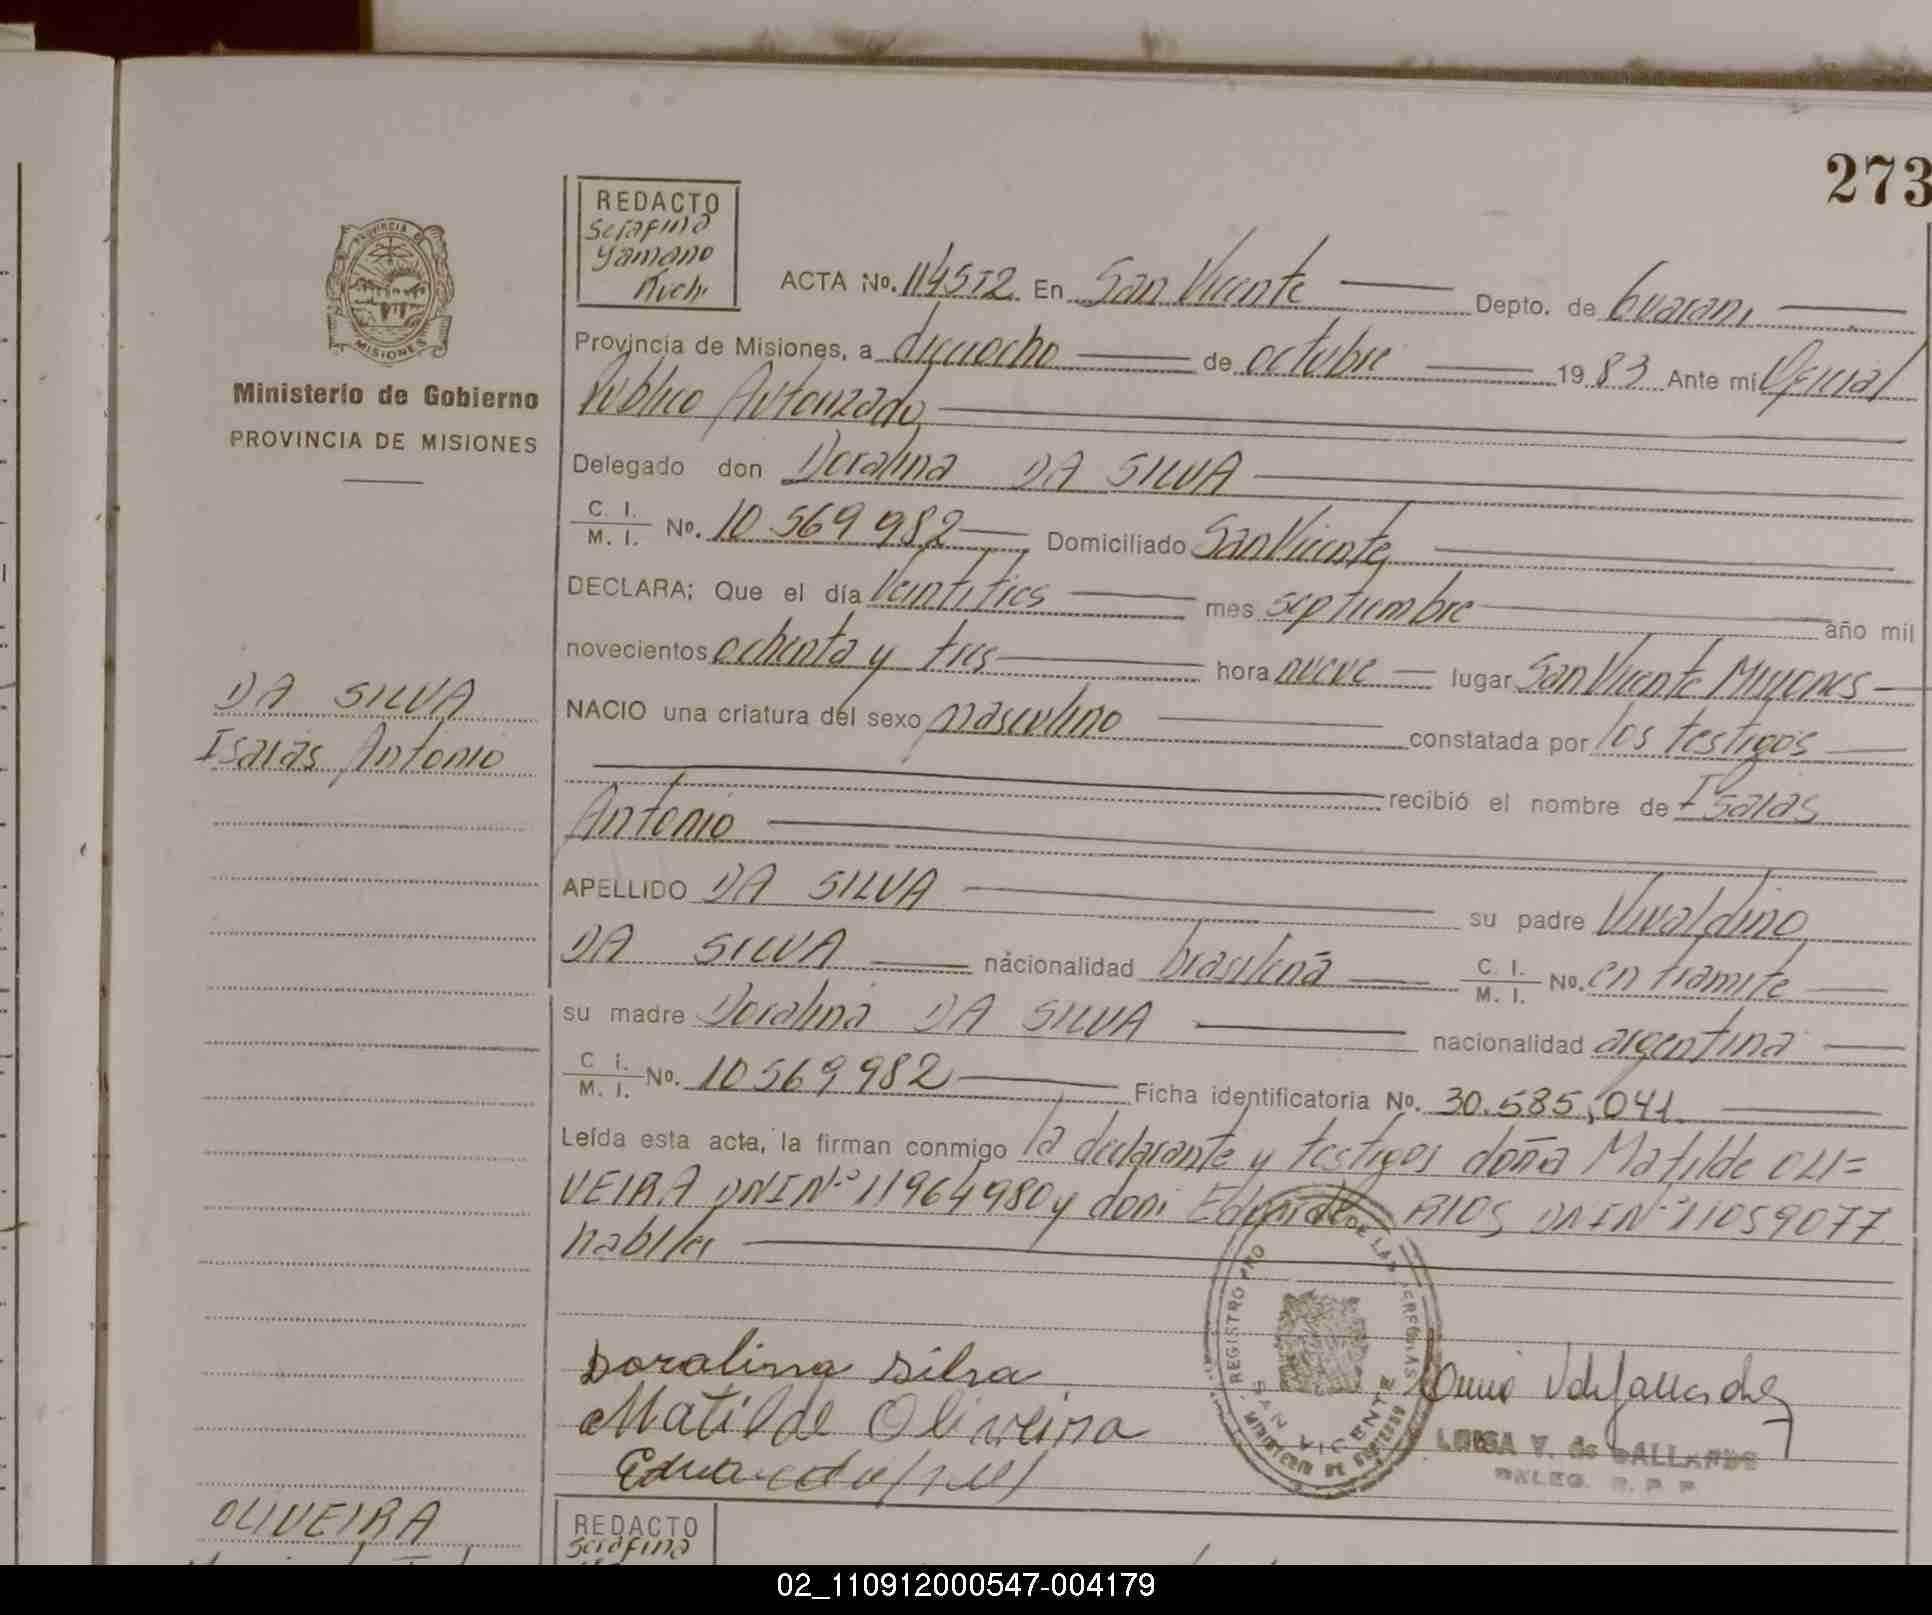 273
REDACTO
Serafina
Yamano
Kuch.
PROVINCIA DE
MISIONES
Ministerio de Gobierno
PROVINCIA DE MISIONES
ACTA No. 114512 En San Vicente Depto. de Guarani
Provincia de Misiones, a dieciocho de octubre 1983 Ante mi Oficial
Publico Autorizado
Delegado don Doralina DA SILVA
C. I.
M. I. No. 10 569 982 Domiciliado San Vicente,
DECLARA; Que el día Veintitres mes septiembre año mil
novecientos ochenta y tres hora nueve lugar San Vicente Misiones
NACIO una criatura del sexo masculino constatada por los testigos
recibió el nombre de Isaias
Antonio
APELLIDO DA SILVA su padre Vivaldino
DA SILVA nacionalidad brasilena C. I. M. I. No. en tramite
su madre Doralina DA SILVA nacionalidad argentina
C I. M. I. No. 10569982 Ficha identificatoria No. 30.585,041
Leída esta acta, la firman conmigo la declarante y testigos doña Matilde OLI=
VEIRA DNI Nº 11964980 y don: Eduardo RIOS DNI Nº 11059077
habiles
DA SILVA
Isaias Antonio
Doralina Silva
Matilde Oliveira
Eduardo
REGISTRO DE LAS
SAN VICENTE
MINISTERIO DE GOBIERNO
LUISA V. de GALLARDO
DELEG. R. P. P.
OLIVEIRA
REDACTO
Serafina
02_110912000547-004179